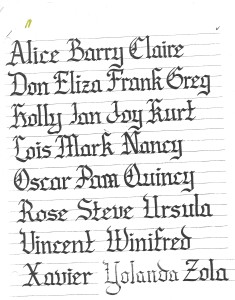 Alice Barry Claire
Don Eliza Frank Greg
Holly Jan Joy Kurt
Lois Mark Nancy
Oscar Pam Quincy
Rose Steve Ursula
Vincent Winifred
Xavier Yolanda Zola